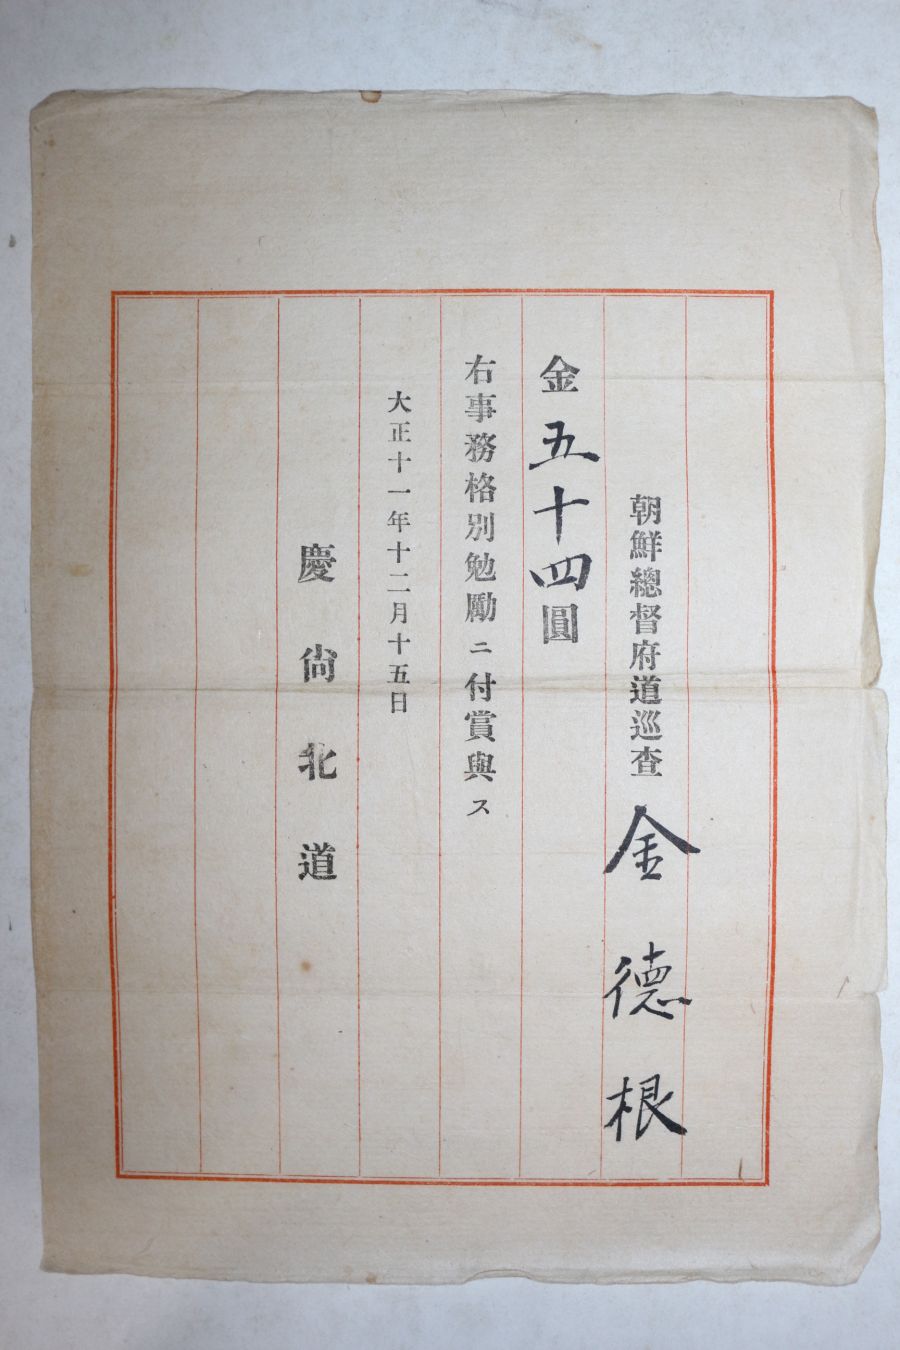 朝鮮總督府道巡查 金德根
金五十四圓
右事務格別勉勵ニ付賞與ス
大正十一年十二月十五日
慶尙北道